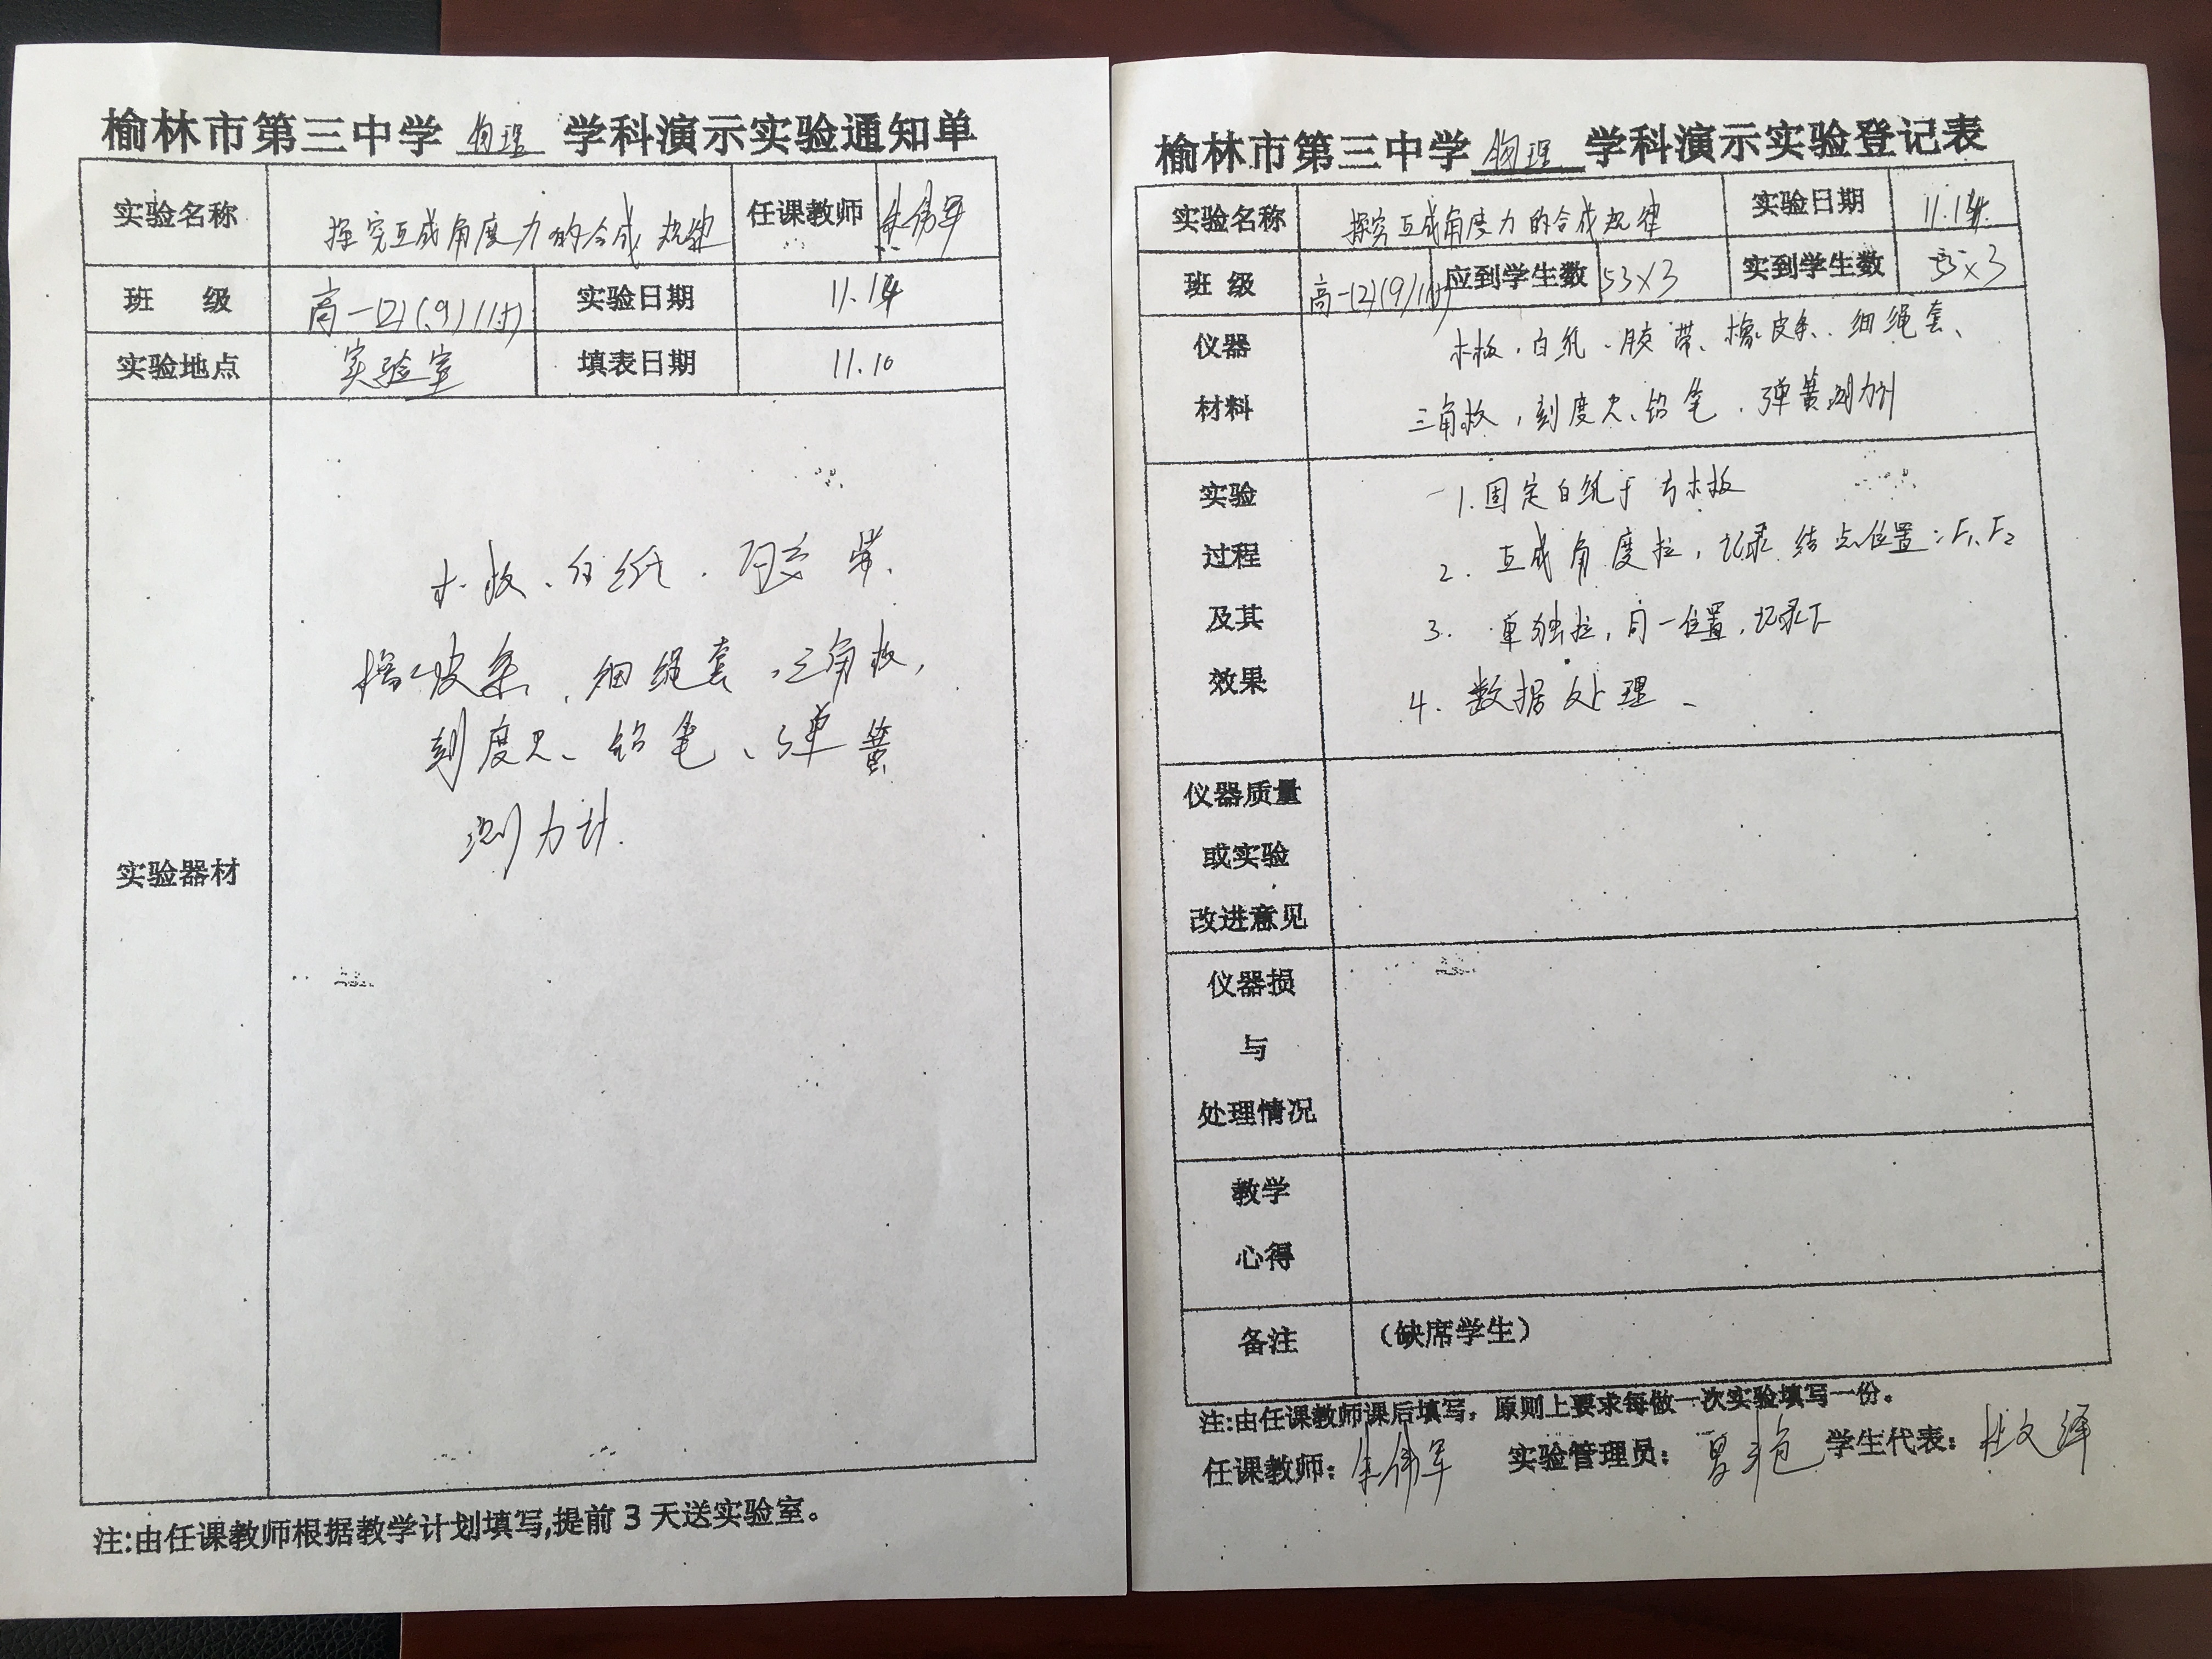 榆林市第三中学 物理 学科演示实验通知单
实验名称 探究互成角度力的合成规律 任课教师 朱伟军
班 级 高一(2)(9)(1付) 实验日期 11.14
实验地点 实验室 填表日期 11.10
实验器材
木板、白纸、胶带、
橡皮条、细绳套、三角板,
刻度尺、铅笔、弹簧
测力计.
注:由任课教师根据教学计划填写,提前 3 天送实验室。
榆林市第三中学 物理 学科演示实验登记表
实验名称 探究互成角度力的合成规律 实验日期 11.14.
班 级 高一(2)(9) 应到学生数 53×3 实到学生数 53×3
仪器 木板、白纸、胶带、橡皮条、细绳套、
材料 三角板,刻度尺、铅笔、弹簧测力计
实验 1.固定白纸于方木板
过程 2. 互成角度拉,记录结点位置;F1、F2
及其 3. 单独拉,同一位置,记录F
效果 4. 数据处理、
仪器质量
或实验
改进意见
仪器损
与
处理情况
教学
心得
备注 (缺席学生)
注:由任课教师课后填写,原则上要求每做一次实验填写一份。
任课教师: 朱伟军 实验管理员: 学生代表: 杜文泽